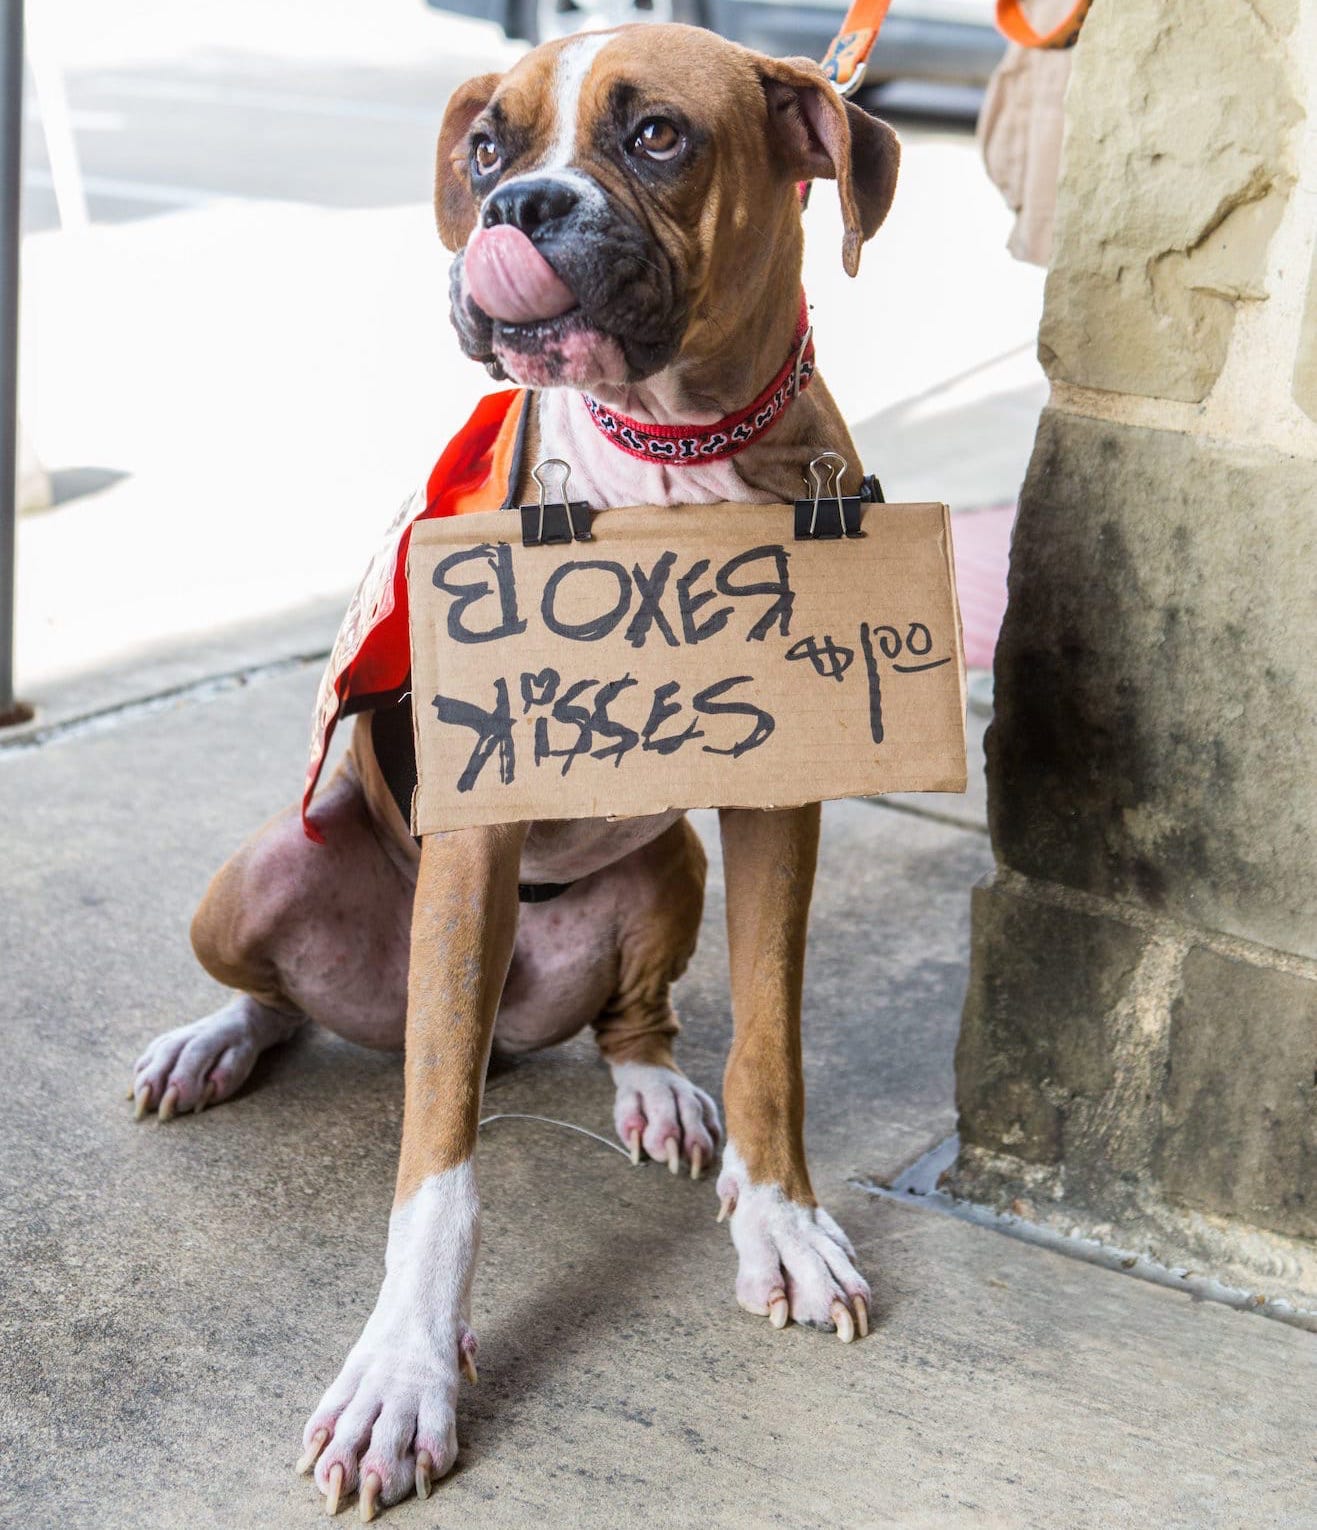 BOXER
KiSSES $1.00